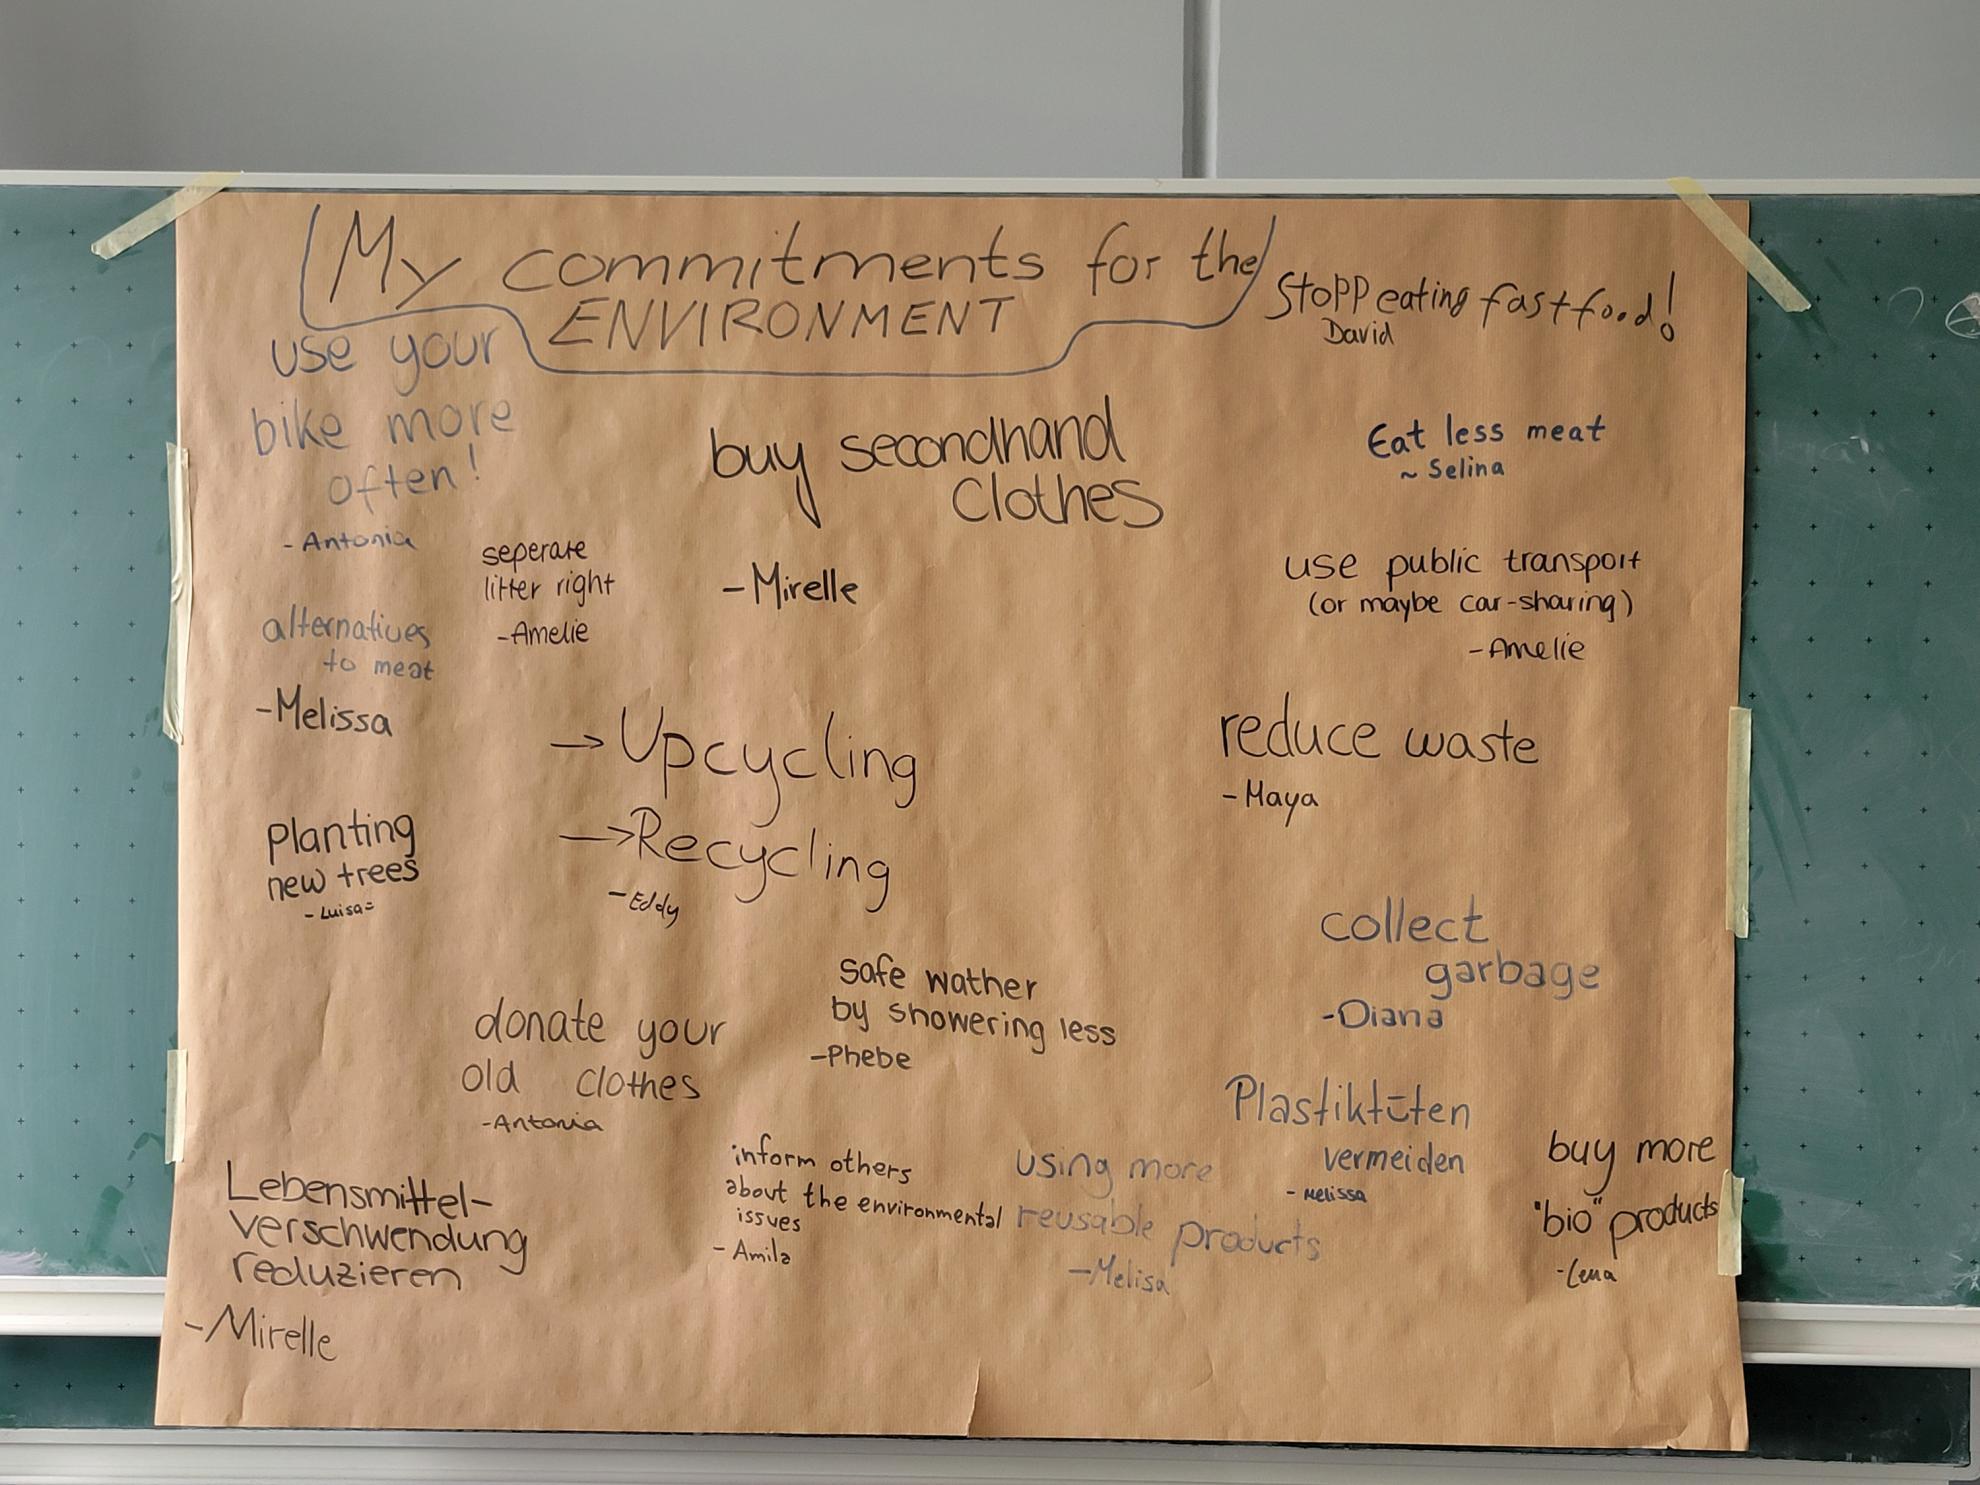 My commitments for the
ENVIRONMENT
Stopp eating fastfood!
David
use your
bike more
often!
- Antonia
buy secondhand
clothes
- Mirelle
Eat less meat
~ Selina
seperate
litter right
- Amelie
use public transport
(or maybe car-sharing)
- Amelie
alternatives
to meat
- Melissa
→ Upcycling
→ Recycling
- Eddy
reduce waste
- Maya
Planting
new trees
- Luisa
collect
garbage
- Diana
safe wather
by showering less
- Phebe
donate your
old clothes
- Antonia
Plastiktüten
vermeiden
- Melissa
buy more
"bio" products
- Lena
Lebensmittel-
verschwendung
reduzieren
- Mirelle
inform others
about the environmental
issues
- Amila
using more
reusable products
- Melisa